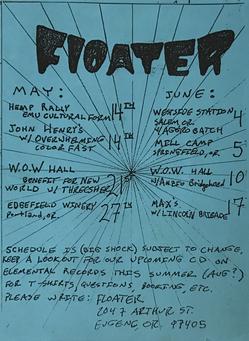 FLOATER
MAY:
HEMP RALLY 14TH
EMU CULTURAL FORUM
JOHN HENRY'S 14TH
W/ OVERWHELMING
COLOR FAST
W.O.W HALL 21ST
BENEFIT FOR NEW
WORLD W/ THRESHER
EDGEFIELD WINERY 27TH
Portland, or
JUNE:
WESTSIDE STATION 4
SALEM OR.
W/ AGGRO SATCH
MILL CAMP 5
SPRINGFIELD, OR
W.O.W. HALL 10
W/ Amber Bridgehead
MAX'S 17
W/ LINCOLN BRIGADE
SCHEDULE IS (BIG SHOCK) SUBJECT TO CHANGE.
KEEP A LOOKOUT FOR OUR UPCOMING CD ON
ELEMENTAL RECORDS THIS SUMMER (AUG?)
FOR T-SHIRTS, QUESTIONS, BOOKING, ETC.
PLEASE WRITE: FLOATER
2047 ARTHUR ST.
EUGENE, OR 97405